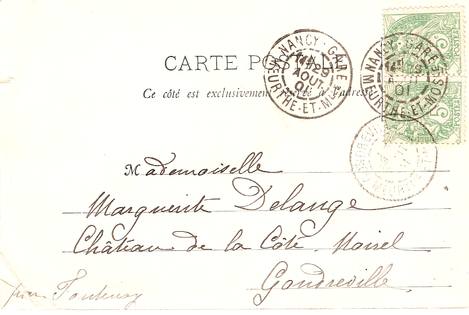 CARTE POSTALE
Ce côté est exclusivement à l'adresse
NANCY-GARE
MEURTHE-ET-MOSELLE
29
AOUT
01
NANCY-GARE
MEURTHE-ET-MOSELLE
29
01
Mademoiselle
Marguerite Delange
Château de la Côte
Gondreville
par Fontenoy